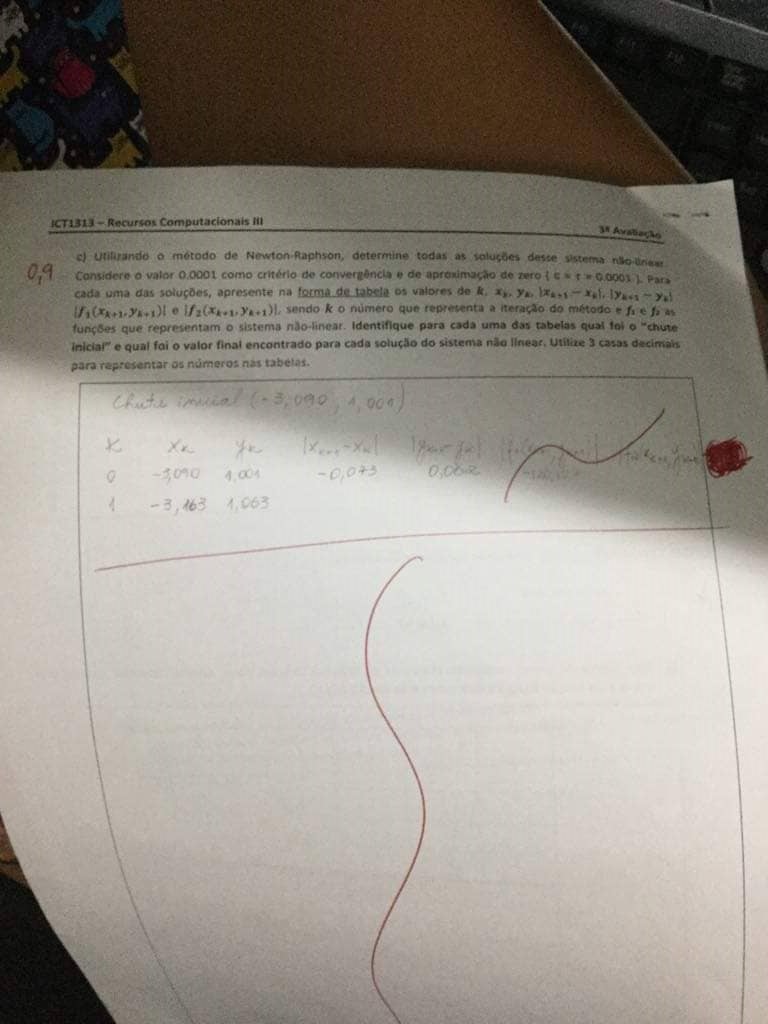 ICT1313 – Recursos Computacionais III
3ª Avaliação
0,9
c) Utilizando o método de Newton-Raphson, determine todas as soluções desse sistema não-linear.
Considere o valor 0.0001 como critério de convergência e de aproximação de zero ( ε = τ = 0.0001 ). Para
cada uma das soluções, apresente na forma de tabela os valores de k, xₖ, yₖ, |xₖ₊₁ − xₖ|, |yₖ₊₁ − yₖ|
|f₁(xₖ₊₁, yₖ₊₁)| e |f₂(xₖ₊₁, yₖ₊₁)|, sendo k o número que representa a iteração do método e f₁ e f₂ as
funções que representam o sistema não-linear. Identifique para cada uma das tabelas qual foi o "chute
inicial" e qual foi o valor final encontrado para cada solução do sistema não linear. Utilize 3 casas decimais
para representar os números nas tabelas.
Chute inicial (-3,090, 1,001)
K xₖ yₖ |xₖ₊₁-xₖ| |yₖ₊₁-yₖ|
0 -3,090 1,001 -0,073 0,062
1 -3,163 1,063